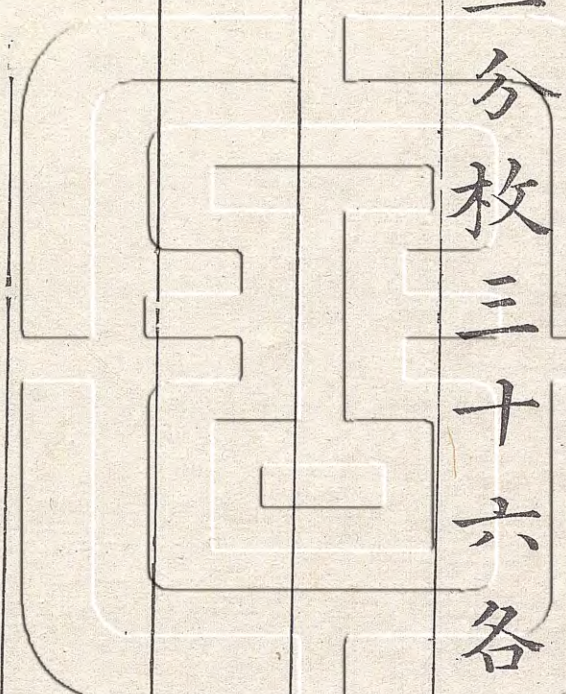 分枚三十六各